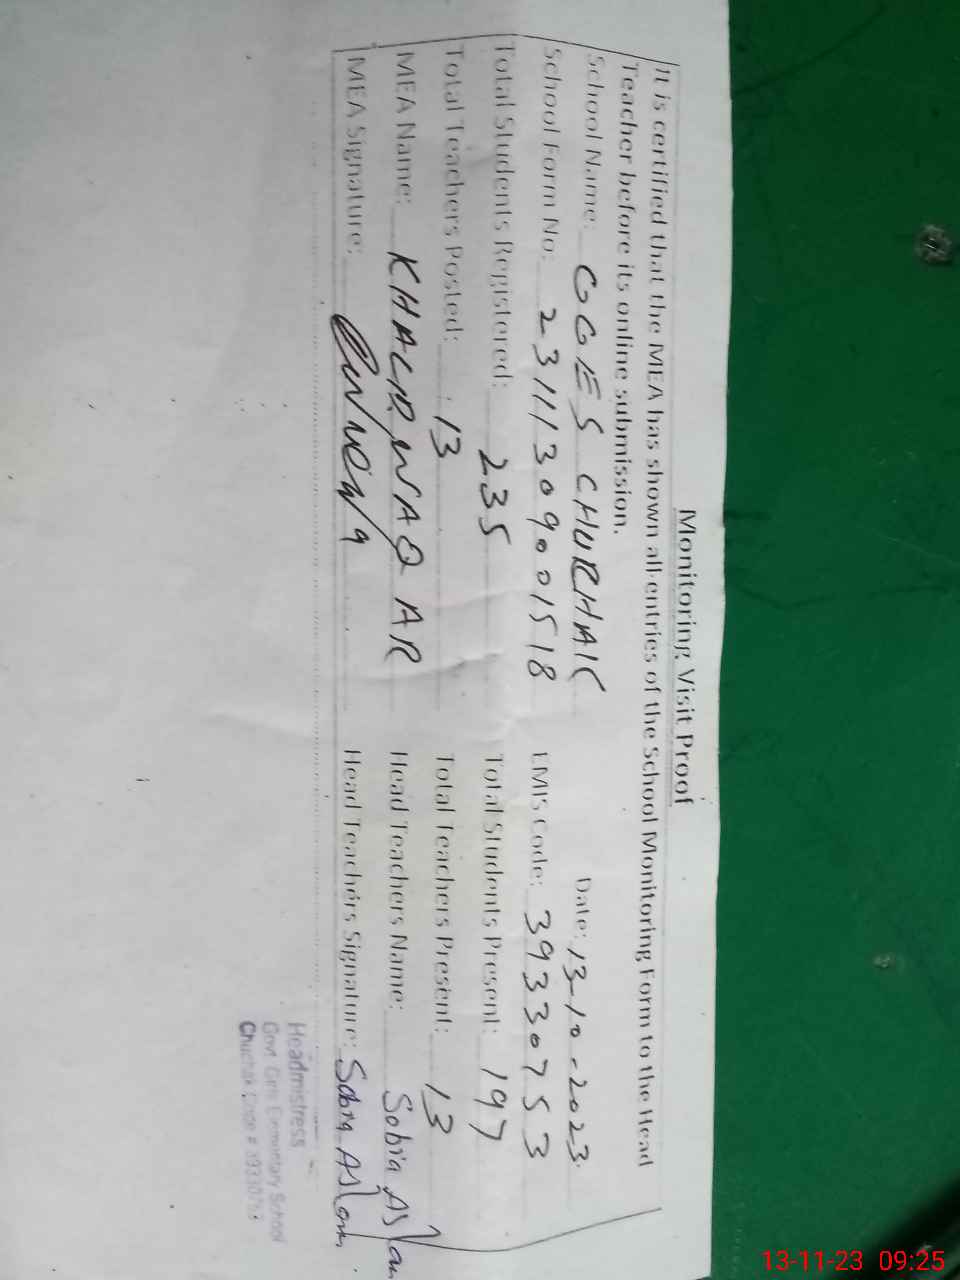 Monitoring Visit Proof
It is certified that the MEA has shown all entries of the School Monitoring Form to the Head
Teacher before its online submission.
School Name: GGES CHURHAK Date: 13-10-2023
School Form No: 23111309001518 EMIS Code: 39330753
Total Students Registered: 235 Total Students Present: 197
Total Teachers Posted: 13 Total Teachers Present: 13
MEA Name: KHALID WAQAR Head Teachers Name: Sobia Aslam
MEA Signature: Head Teachers Signature: Sobia Aslam
Headmistress
Govt Girls Elementary School
Code # 39330753
13-11-23 09:25